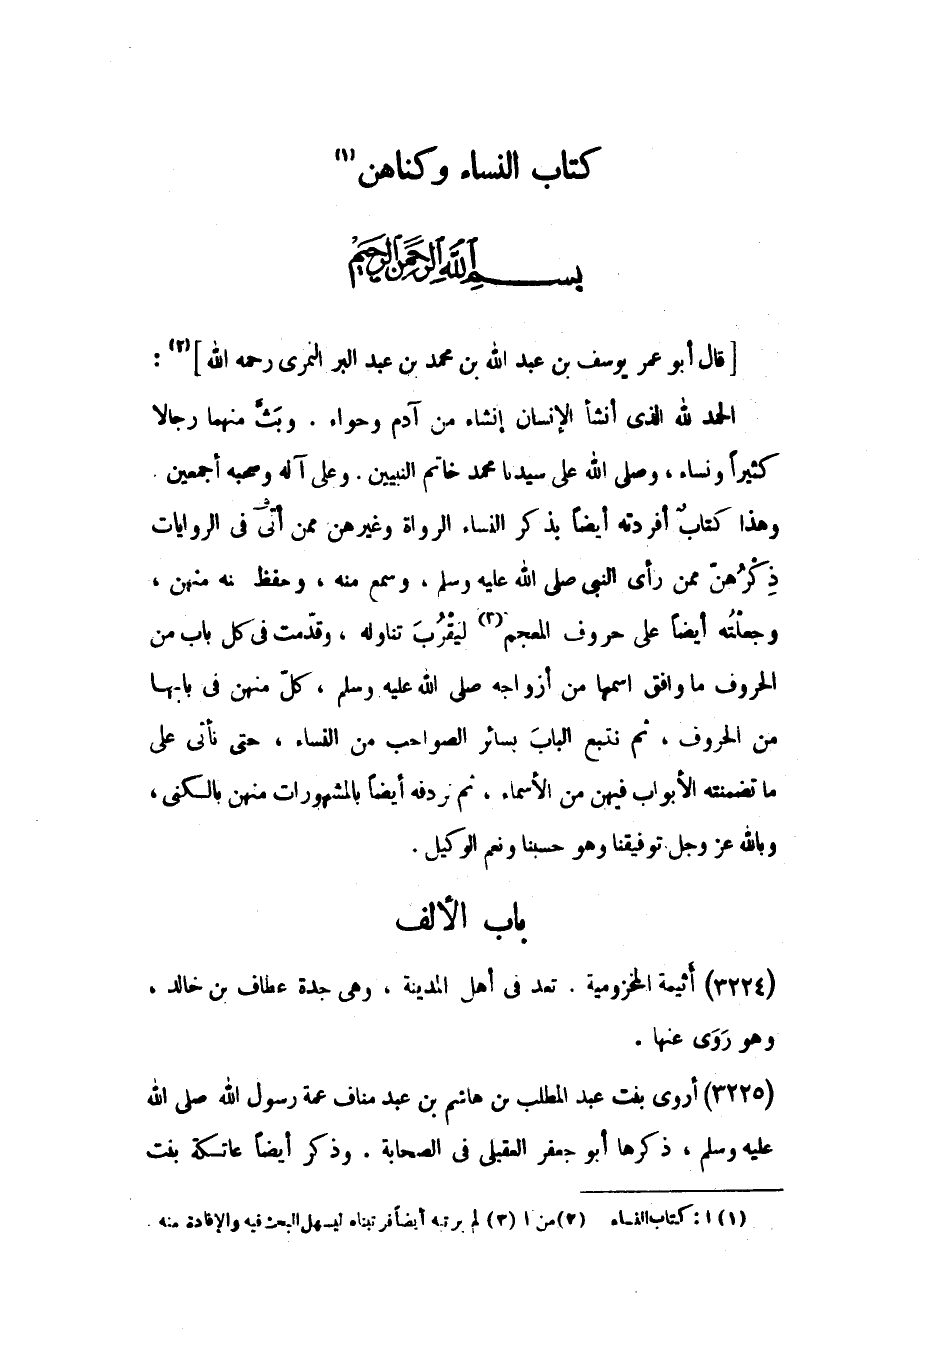 كتاب النساء وكناهن (١)
بسم الله الرحمن الرحيم
[ قال أبو عمر يوسف بن عبد الله بن محمد بن عبد البر النمرى رحمه الله ] (٢) :
الحمد لله الذى أنشأ الإنسان إنشاء من آدم وحواء . وبَثَّ منهما رجالا
كثيراً ونساء ، وصلى الله على سيدنا محمد خاتم النبيين . وعلى آله وصحبه أجمعين .
وهذا كتابٌ أفردته أيضاً بذكر النساء الرواة وغيرهن ممن أتى فى الروايات
ذِكْرُهنّ ممن رأى النبى صلى الله عليه وسلم ، وسمع منه ، وحفظ نه منهن ،
وجعلْتُه أيضاً على حروف المعجم (٣) ليَقْرُبَ تناوله ، وقدّمت فى كل باب من
الحروف ما وافق اسمها من أزواجه صلى الله عليه وسلم ، كلّ منهن فى بابها
من الحروف ، ثم نتبع البابَ بسائر الصواحب من النساء ، حتى نأتى على
ما تضمنته الأبواب فيهن من الأسماء . ثم نردفه أيضاً بالمشهورات منهن بالكنى ،
وبالله عز وجل توفيقنا وهو حسبنا ونعم الوكيل .
باب الألف
(٣٢٢٤) أثيمة المخزومية . تعد فى أهل المدينة ، وهى جدة عطاف بن خالد ،
وهو رَوَى عنها .
(٣٢٢٥) أروى بنت عبد المطلب بن هاشم بن عبد مناف عمة رسول الله صلى الله
عليه وسلم ، ذكرها أبو جعفر العقيلى فى الصحابة . وذكر أيضاً عاتكة بنت
(١) ا : كتاب النساء (٢) من ا (٣) لم يرتبه أيضاً فرتبناه ليسهل البحث فيه والإفادة منه .